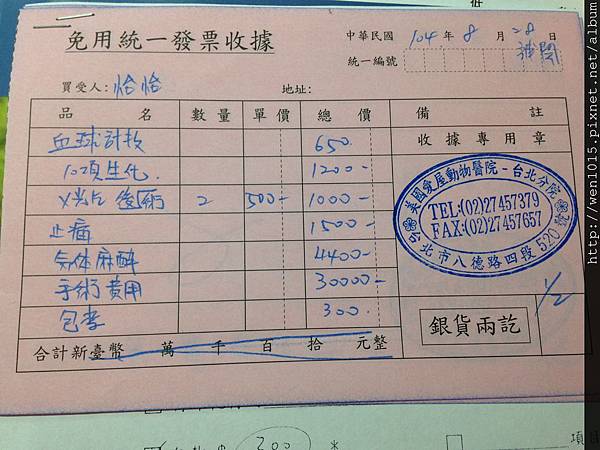 免用統一發票收據
中華民國 104 年 8 月 28 日
統一編號
買受人: 恰恰 地址:
品名 數量 單價 總價 備註
血球計數 650. 收據專用章
10項生化. 1200-
X光片 後術 2 500- 1000-
止痛 1500-
气体麻醉 4400-
手術費用 30000-
包套 300.
美國愛屋動物醫院-台北分院
TEL:(02)27457379
FAX:(02)27457657
台北市八德路四段520號
1/2
銀貨兩訖
合計新臺幣 萬 仟 百 拾 元整
300
項目
http://wen1015.pixnet.net/album